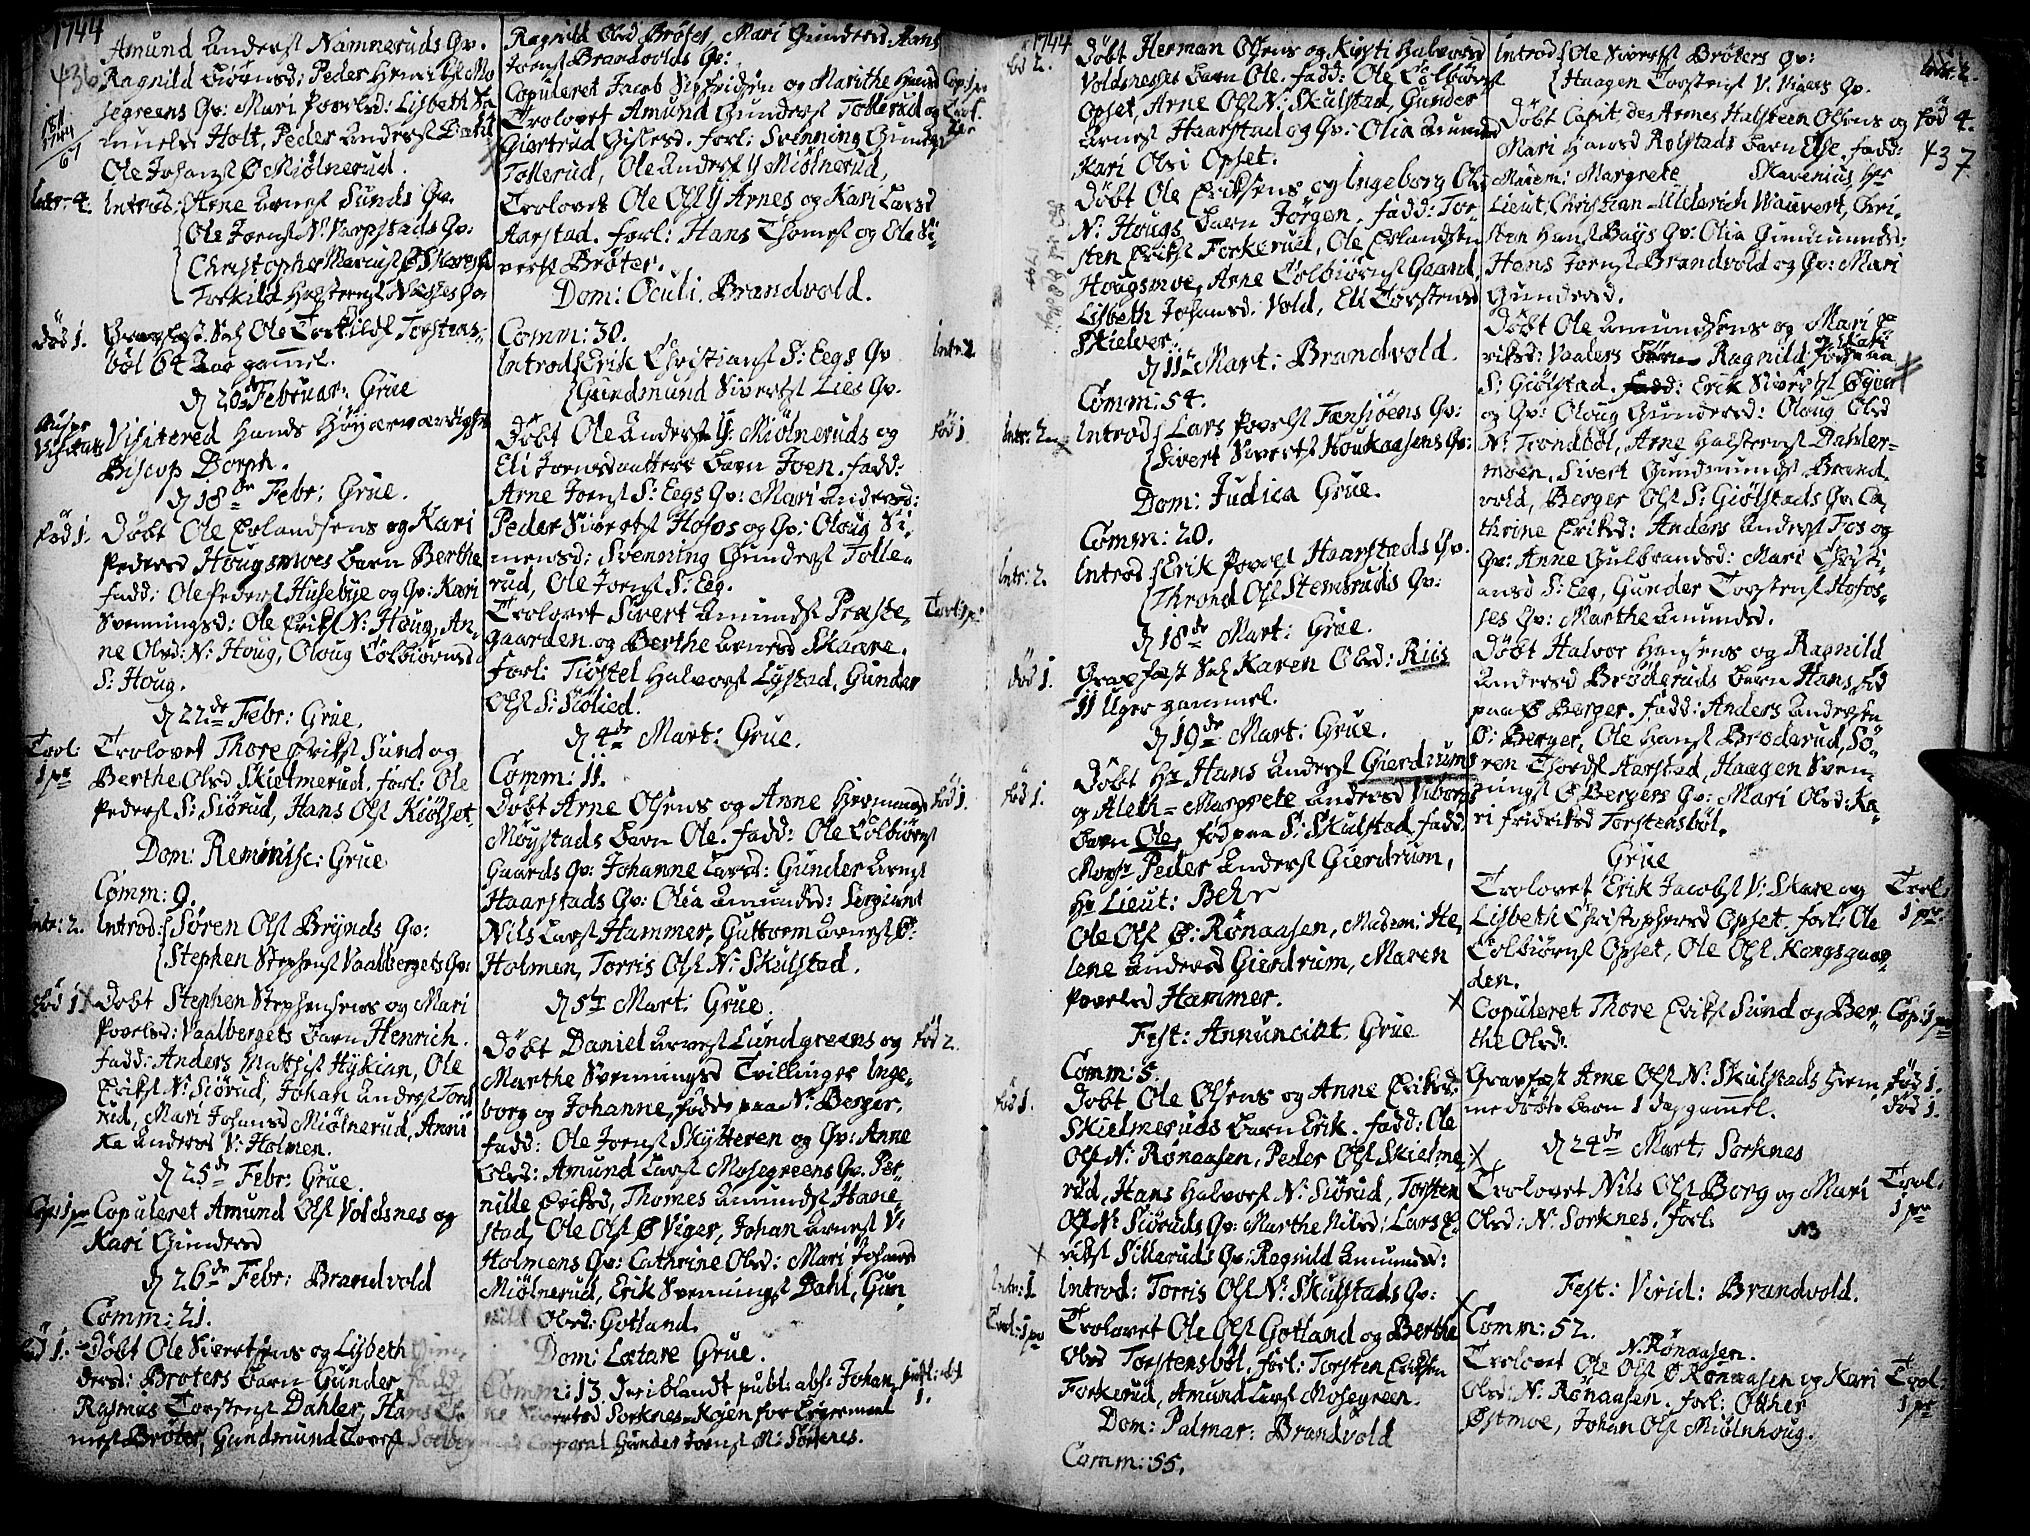 1744
Amund Anders: Namneruds Qv.
436
Ragnild Biörnsd: Peder Henrichs: Mo
segreens Qv: Mari Povelsd: Lisbeth Sa
muels: Holt, Peder Anders: Dahl
Ole Johans: Ø Miölnerud.
Intr: 4. Introd: Arne Arnes: Sunds Qv.
Ole Joens: N: Harpstads Qv:
Christopher Marcus: Ø: Skaress
Torkild Halstens: Næsses Qv:
død 1. Gravfæst Sal: Ole Torkilds: Torstens-
böl 64 Aar gammel.
d 20 Februar: Grue
Visitered Hands Höyærværdighed
Biscop Dorph.
d 18de Febr: Grue.
föd 1. Döbt Ole Erlandsens og Kari
Pedersd Hougsmoes barn Berthe
fadd: Ole Peders: Husebye og Qv: Kari
Svenningsd: Ole Eriks: N: Houg, An-
ne Olsd: N: Houg, Oloug Colbiörnsd
S: Houg.
d 22de Febr: Grue.
Trol: 1 pr Trolovet Thore Eriks: Sund og
Berthe Olsd Skielmerud. forl: Ole
Peders: S: Siörud, Hans Ols: Kiölset.
Dom: Reminisc: Grue
Comm: 9.
Intr: 2. Introd: Sören Ols: Brynds Qv:
Stephen Stephens: Vaalbergets Qv:
föd 1. Döbt Stephen Stephensens og Mari
Povelsd: Vaalbergets barn Henrich.
fadd: Anders Mathis: Hykian, Ole
Eriks: N: Siörud, Johan Anders: Tord
rud, Mari Johansd Miölnerud, Anni
ka Andersd V: Holmen.
d 25de Febr: Grue.
Cop: 1 pr Copuleret Amund Ols: Voldsnes og
Kari Gundersd
d 26de Febr: Brandvold
Comm: 21.
föd 1. Döbt Ole Sivertsens og Lisbeth
dersd: Bröters barn Gunder
Rasmus Torstens: Dahler, Hans Tho
mes: Bröter, Gundmund Tores:
Ragnild Olsd Bröter, Mari Gundersd. Hans
Joens: Brandvolds Qv:
Copuleret Jacob Sigfridsen og Marithe Hansd
Trolovet Amund Gunders: Tollerud og
Giertrud Gislesd. forl: Svenning Gunders:
Tollerud, Ole Anders: Y Miölnerud,
Trolovet Ole Ols: Y Arnes og Kari Larsd
Aarstad. forl: Hans Thomes: og Ole Si-
verts: Bröter.
Dom: Oculi. Brandvold.
Comm: 30.
Introd: Erik Christians: S: Eegs Qv Intr: 2
Gundmund Siverts: Lies Qv.
Döbt Ole Anders: Y: Miölneruds og föd 1
Eli Joensdaatters barn Joen. fadd:
Arne Joens: S: Eegs Qv: Mari Andersd:
Peder Siverts: Hofos og Qv: Oloug Si-
mensd; Svenning Gunders: Tolle-
rud, Ole Joens: S: Eeg.
Trolovet Sivert Amunds: Præste- Trol: 1 pr
gaarden og Berthe Arnesd Skaare.
forl: Tiöstel Halvors: Lystad, Gunder
Ols: S: Siölied.
d 4de Mart: Grue.
Comm: 11.
Döbt Arne Olsens og Anne Hermansd föd 1.
Möystads barn Ole. fadd: Ole Colbiörns:
Gaards Qv: Johanne Larsd: Gunder Arnes:
Haarstads Qv: Olia Amundsd: Sergiant
Nils Lars: Hammer, Guttorm Arnes: Ø:
Holmen, Torris Ols: N: Skulstad.
d 5te Mart: Grue.
Döbt Daniel Arves: Lundgreens og föd 2.
Marthe Svenningsd Tvillinger Inge-
borg og Johanne, födde paa N: Berger.
fadd: Ole Joens: Skytteren og Qv: Anne
Olsd: Amund Lars: Mosegreens Qv: Per-
nille Eriksd, Thomes Amunds: Have-
stad, Ole Ols: Ø Viger, Johan Arnes: V:
Holmens Qv: Cathrine Olsd: Mari Johansd
Miölnerud, Erik Svennings: Dahl, Gun-
nild Olsd: Gotland.
Dom: Lætare Grue.
Comm: 13. deriblandt publ: abs: Johan publ: abs: 1.
ne Sivertsd Sorknes-Kojen for Leiermaal
med Corporal Gunder Joens: N: Sorknes.
1744
föd 2. Döbt Herman Olsens og Kirsti Halvorsd
Voldsneses barn Ole. fadd: Ole Colbiörns:
Opset, Arne Ols: N: Skulstad, Gunder
Arnes: Haarstad og Qv: Olia Amunds
Kari Olsd Opset.
Döbt Ole Eriksens og Ingeborg Ols
N: Hougs barn Jörgen. fadd: Tor-
sten Eriks: Forkerud, Ole Erlandsen
Hougsmoe, Arne Colbiörns: Gaard,
Lisbeth Johansd. Vold, Eli Torstensd
Skielver.
d 11te Mart: Brandvold.
Comm: 54.
Intr: 2 Introd: Lars Povels: Tæpsjöens Qv:
Sivert Siverts: Koukaasens Qv:
Dom: Judica Grue.
Comm: 20.
Intr: 2. Introd: Erik Povels: Haarstads Qv.
Thrond Ols: Stemsruds Qv:
d 18de Mart: Grue.
död 1. Gravfæst Sal: Karen Olsd: Riis
11 Uger gammel.
d 19de Mart: Grue.
föd 1. Döbt Hr Hans Anders: Gierdrums
og Aleth-Margrete Andersd Viborgs
barn Ole, föd paa S: Skulstad. fadd:
Monsr Peder Anders: Gierdrum,
Hr Lieut: Behr
Ole Ols: Ø: Rönaasen, Madem: He-
lene Andersd Gierdrum, Maren
Povelsd Hammer.
Fest: Annunciat. Grue
Comm: 5.
föd 1. Döbt Ole Olsens og Anne Eriksd:
Skielmeruds barn Erik. fadd: Ole
Ols: N: Rönaasen, Peder Ols: Skielme-
rud, Hans Halvors: N: Siörud, Torsten
Ols: N: Siöruds Qv: Marthe Nilsd: Lars E-
riks: Silleruds Qv: Ragnild Amundsd:
Intr: 1 Introd: Torris Ols: N: Skulstads Qv:
Trol: 1 pr Trolovet Ole Ols: Gotland og Berthe
Olsd Torstensböl. forl: Torsten Eriksen
Forkerud, Amund Lars: Mosegreen.
Dom: Palmar: Brandvold
Comm: 55.
Introd: Ole Siverts: Bröters Qv: Intr: 2.
Haagen Torstens: V. Vigers Qv.
Döbt Capit: des Armes Halsteen Olsens og föd 4.
Mari Hansd Rolstads barn Else. fadd: 437
Madem: Margrete Skavenius Hr
Lieut, Christian-Ulderich Wauvert, Chri-
sten Hans: Bays Qv: Olia Gundmundsd:
Hans Joens: Brandvold og Qv: Mari
Gundersd.
Döbt Ole Amundsens og Mari E-
riksd: Vaalers barn Ragnild, föd paa
S: Giölstad. fadd: Erik Siverts: Øyen
og Qv: Oloug Gundersd: Oloug Olsd
N: Trondböl, Arne Halstens: Dahler-
moen, Sivert Gundmunds: Brand-
vold, Berger Ols: S: Giölstads Qv: Ca-
thrine Eriksd: Anders Anders: Fos og
Qv: Anne Gulbrandsd: Mari Christi-
ansd S: Eeg, Gunder Torstens: Hofos-
ses Qv: Marthe Amundsd.
Döbt Halvor Hansens og Ragnild
Andersd Bröderuds barn Hans, föd
paa Ø Berger. fadd: Anders Andersen
Ø: Berger, Ole Hans: Bröderud, Sö-
ren Thords: Aarstad, Haagen Sven-
nings: Ø Bergers Qv: Mari Olsd: Ka-
ri Fridriksd Torstensböl.
Grue
Trolovet Erik Jacobs: V: Skare og Trol: 1 pr.
Lisbeth Christophersd Opset. forl: Ole
Colbiörns: Opset, Ole Ols: Kongsgaar-
den.
Copuleret Thore Eriks: Sund og Ber- Cop: 1 pr
the Olsd:
Gravfæst Arne Ols: N: Skulstads Hiem föd 1.
medöbte barn 1 dag gammel. död 1.
d 24de Mart: Sorknes
Trolovet Nils Ols: Borg og Mari Trol: 1 pr
Olsd: N: Sorknes. forl:
NB
Fest: Virid: Brandvold.
Comm: 52.
N. Rönaasen.
Trolovet Ole Ols: Ø Rönaasen og Kari Trol: 1 pr
Olsd: N: Rönaasen. forl: Otther
Østmoe, Johan Ols: Miölnhoug.